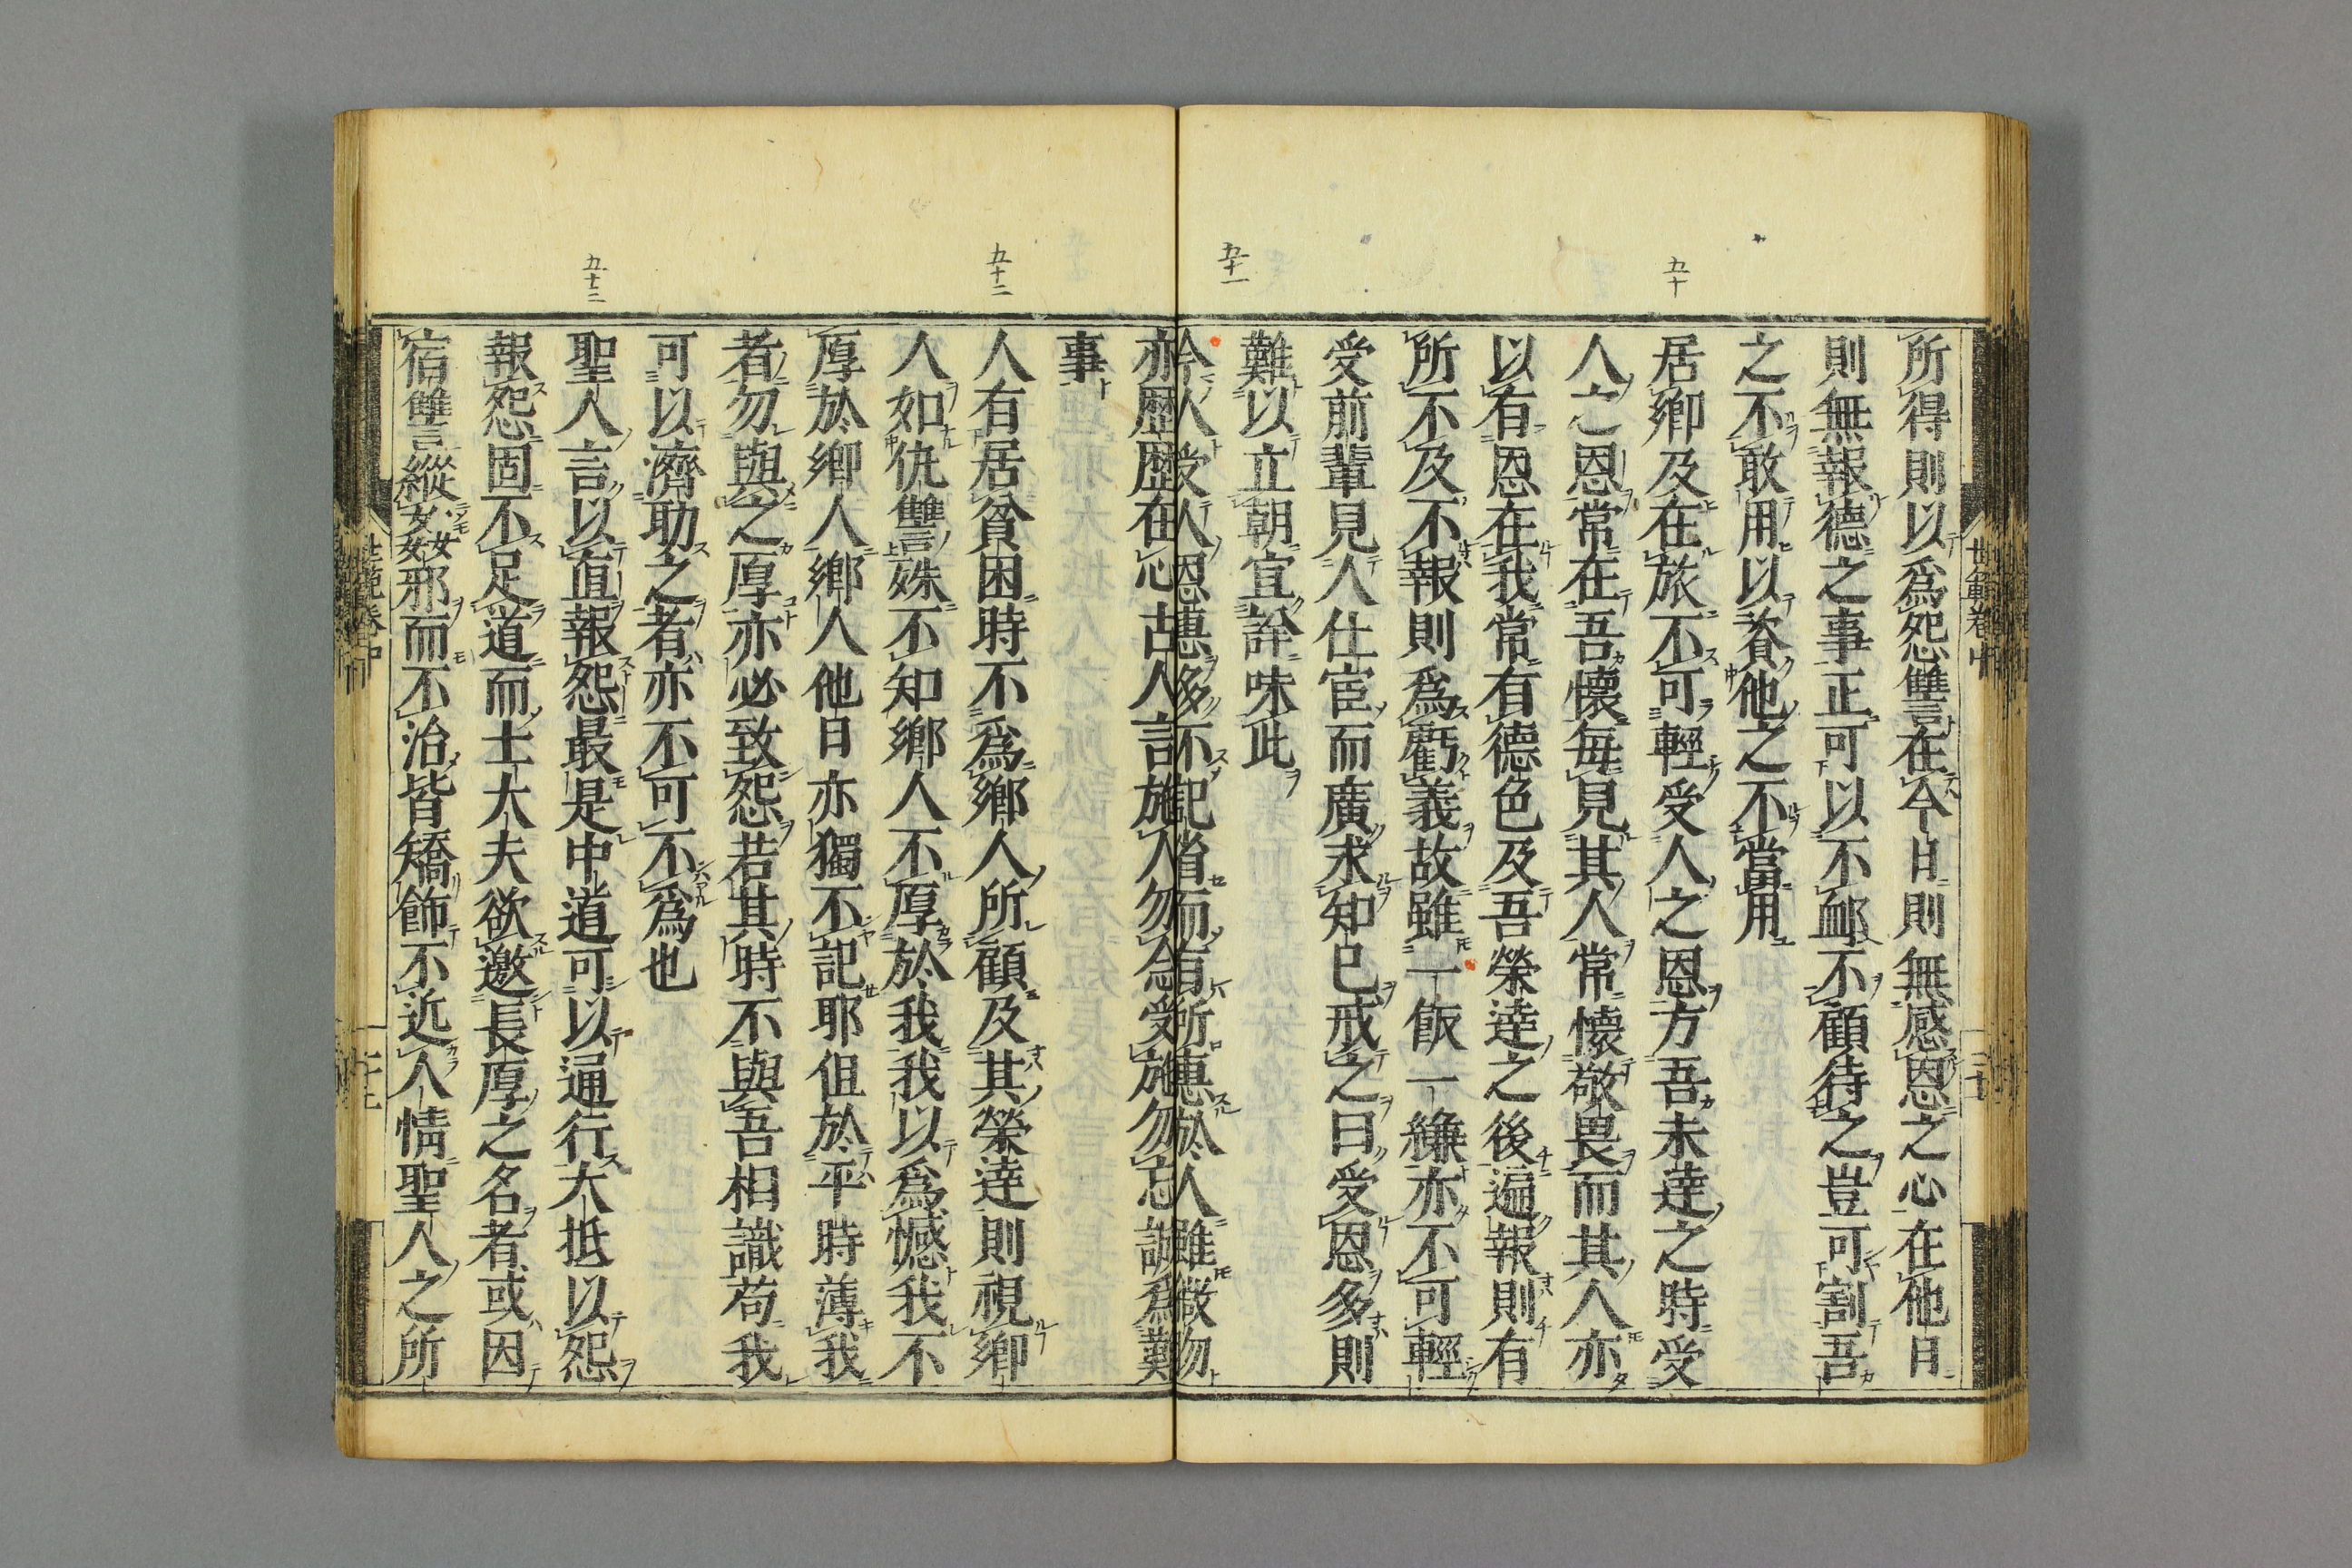 五十
五十一
五十二
五十三
世範卷中
三十
所得則以爲怨讐在今日則無感恩之心在他日
則無報德之事正可以不䘏不顧待之豈可割吾
之不敢用以資他之不當用
居鄉及在旅不可輕受人之恩方吾未達之時受
人之恩常在吾懷每見其人常懷敬畏而其人亦
以有恩在我常有德色及吾榮達之後遍報則有
所不及不報則爲虧義故雖一飯一縑亦不可輕
受前輩見人仕宦而廣求知己戒之曰受恩多則
難以立朝宜詳味此
今人受人恩惠多不記省而有所惠於人雖微物
亦歷歷在心古人言施人勿念受施勿忘誠爲難
事
人有居貧困時不爲鄉人所顧及其榮達則視鄉
人如仇讐殊不知鄉人不厚於我我以爲憾我不
厚於鄉人鄉人他日亦獨不記耶但於平時薄我
者勿與之厚亦必致怨若其時不與吾相識苟我
可以濟助之者亦不可不爲也
聖人言以直報怨最是中道可以通行大抵以怨
報怨固不足道而士大夫欲邀長厚之名者或因
宿讐縱姦邪而不治皆矯飾不近人情聖人之所
世範卷中